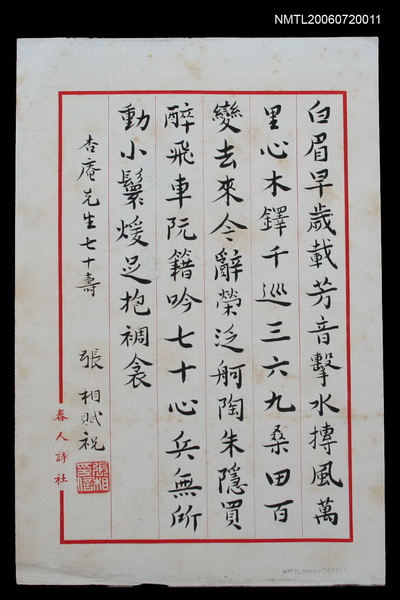 NMTL20060720011
白眉早歲載芳音擊水摶風萬
里心木鐸千巡三六九桑田百
變去來今辭榮泛舸陶朱隱買
醉飛車阮籍吟七十心兵無所
動小鬟煖足抱裯衾
杏庵先生七十壽
張相賦祝
張相
春人詩社
NMTL20060720011